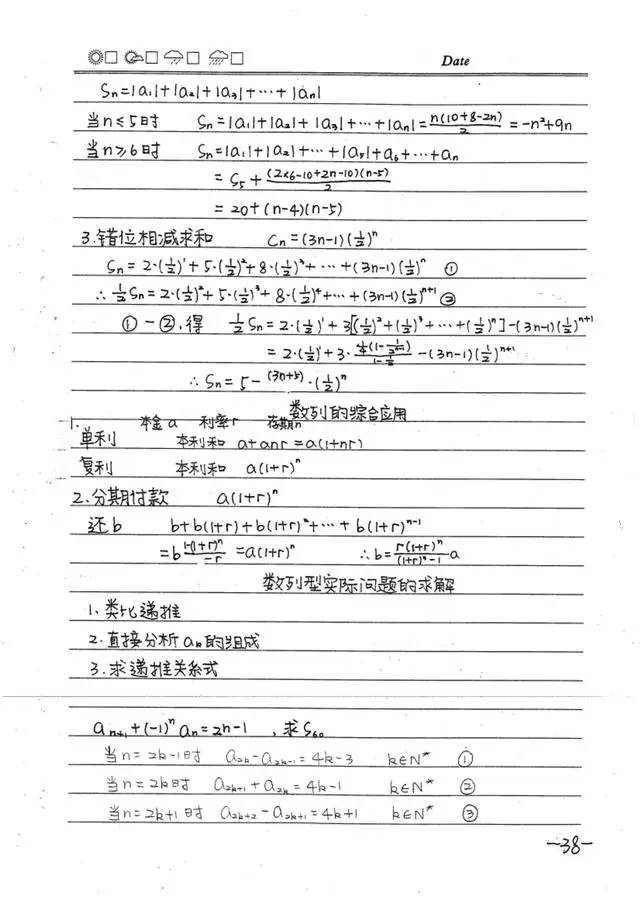 Date
Sn=|a₁|+|a₂|+|a₃|+⋯+|an|
当n≤5时 Sn=|a₁|+|a₂|+|a₃|+⋯+|an|=n(10+8-2n)/2=-n²+9n
当n≥6时 Sn=|a₁|+|a₂|+⋯+|a₅|+a₆+⋯+an
=S₅+(2×6-10+2n-10)(n-5)/2
=20+(n-4)(n-5)
3.错位相减求和 Cn=(3n-1)(1/2)ⁿ
Sn=2·(1/2)¹+5·(1/2)²+8·(1/2)³+⋯+(3n-1)(1/2)ⁿ ①
∴1/2Sn=2·(1/2)²+5·(1/2)³+8·(1/2)⁴+⋯+(3n-1)(1/2)ⁿ⁺¹ ②
①-②,得 1/2Sn=2·(1/2)¹+3[(1/2)²+(1/2)³+⋯+(1/2)ⁿ]-(3n-1)(1/2)ⁿ⁺¹
=2·(1/2)¹+3·(1/4(1-1/2ⁿ⁻¹))/(1-1/2)-(3n-1)(1/2)ⁿ⁺¹
∴Sn=5-(3n+5)·(1/2)ⁿ
数列的综合应用
1. 本金a 利率r 存期n
单利 本利和 a+anr=a(1+nr)
复利 本利和 a(1+r)ⁿ
2.分期付款 a(1+r)ⁿ
还b b+b(1+r)+b(1+r)²+⋯+b(1+r)ⁿ⁻¹
=b(1-(1+r)ⁿ)/(-r)=a(1+r)ⁿ ∴b=r(1+r)ⁿ/((1+r)ⁿ-1)a
数列型实际问题的求解
1.类比递推
2.直接分析an的组成
3.求递推关系式
an+1+(-1)ⁿan=2n-1,求S₆₀
当n=2k-1时 a2k-a2k-1=4k-3 k∈N* ①
当n=2k时 a2k+1+a2k=4k-1 k∈N* ②
当n=2k+1时 a2k+2-a2k+1=4k+1 k∈N* ③
-38-